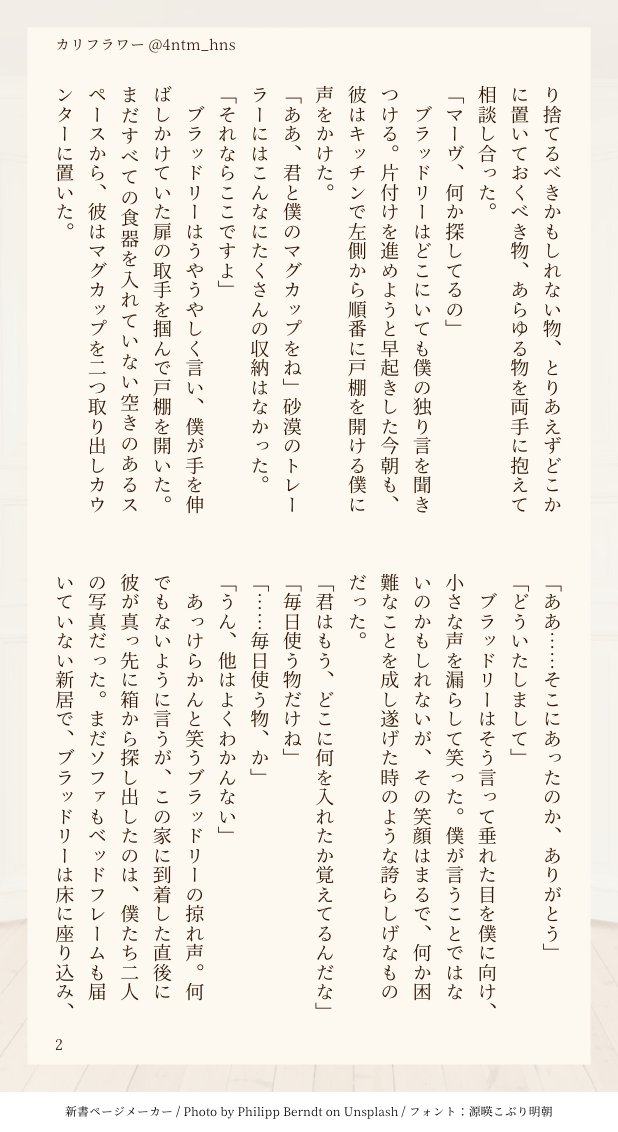 カリフラワー @4ntm_hns
り捨てるべきかもしれない物、とりあえずどこか
に置いておくべき物、あらゆる物を両手に抱えて
相談し合った。
「マーヴ、何か探してるの」
　ブラッドリーはどこにいても僕の独り言を聞き
つける。片付けを進めようと早起きした今朝も、
彼はキッチンで左側から順番に戸棚を開ける僕に
声をかけた。
「ああ、君と僕のマグカップをね」砂漠のトレー
ラーにはこんなにたくさんの収納はなかった。
「それならここですよ」
　ブラッドリーはうやうやしく言い、僕が手を伸
ばしかけていた扉の取手を掴んで戸棚を開いた。
まだすべての食器を入れていない空きのあるス
ペースから、彼はマグカップを二つ取り出しカウ
ンターに置いた。
「ああ……そこにあったのか、ありがとう」
「どういたしまして」
　ブラッドリーはそう言って垂れた目を僕に向け、
小さな声を漏らして笑った。僕が言うことではな
いのかもしれないが、その笑顔はまるで、何か困
難なことを成し遂げた時のような誇らしげなもの
だった。
「君はもう、どこに何を入れたか覚えてるんだな」
「毎日使う物だけね」
「……毎日使う物、か」
「うん、他はよくわかんない」
　あっけらかんと笑うブラッドリーの掠れ声。何
でもないように言うが、この家に到着した直後に
彼が真っ先に箱から探し出したのは、僕たち二人
の写真だった。まだソファもベッドフレームも届
いていない新居で、ブラッドリーは床に座り込み、
2
新書ページメーカー / Photo by Philipp Berndt on Unsplash / フォント：源暎こぶり明朝